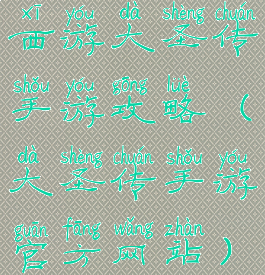 xī yóu dà shèng chuán
西游大圣传
shǒu yóu gōng lüè
手游攻略（
dà shèng chuán shǒu yóu
大圣传手游
guān fāng wǎng zhàn
官方网站）